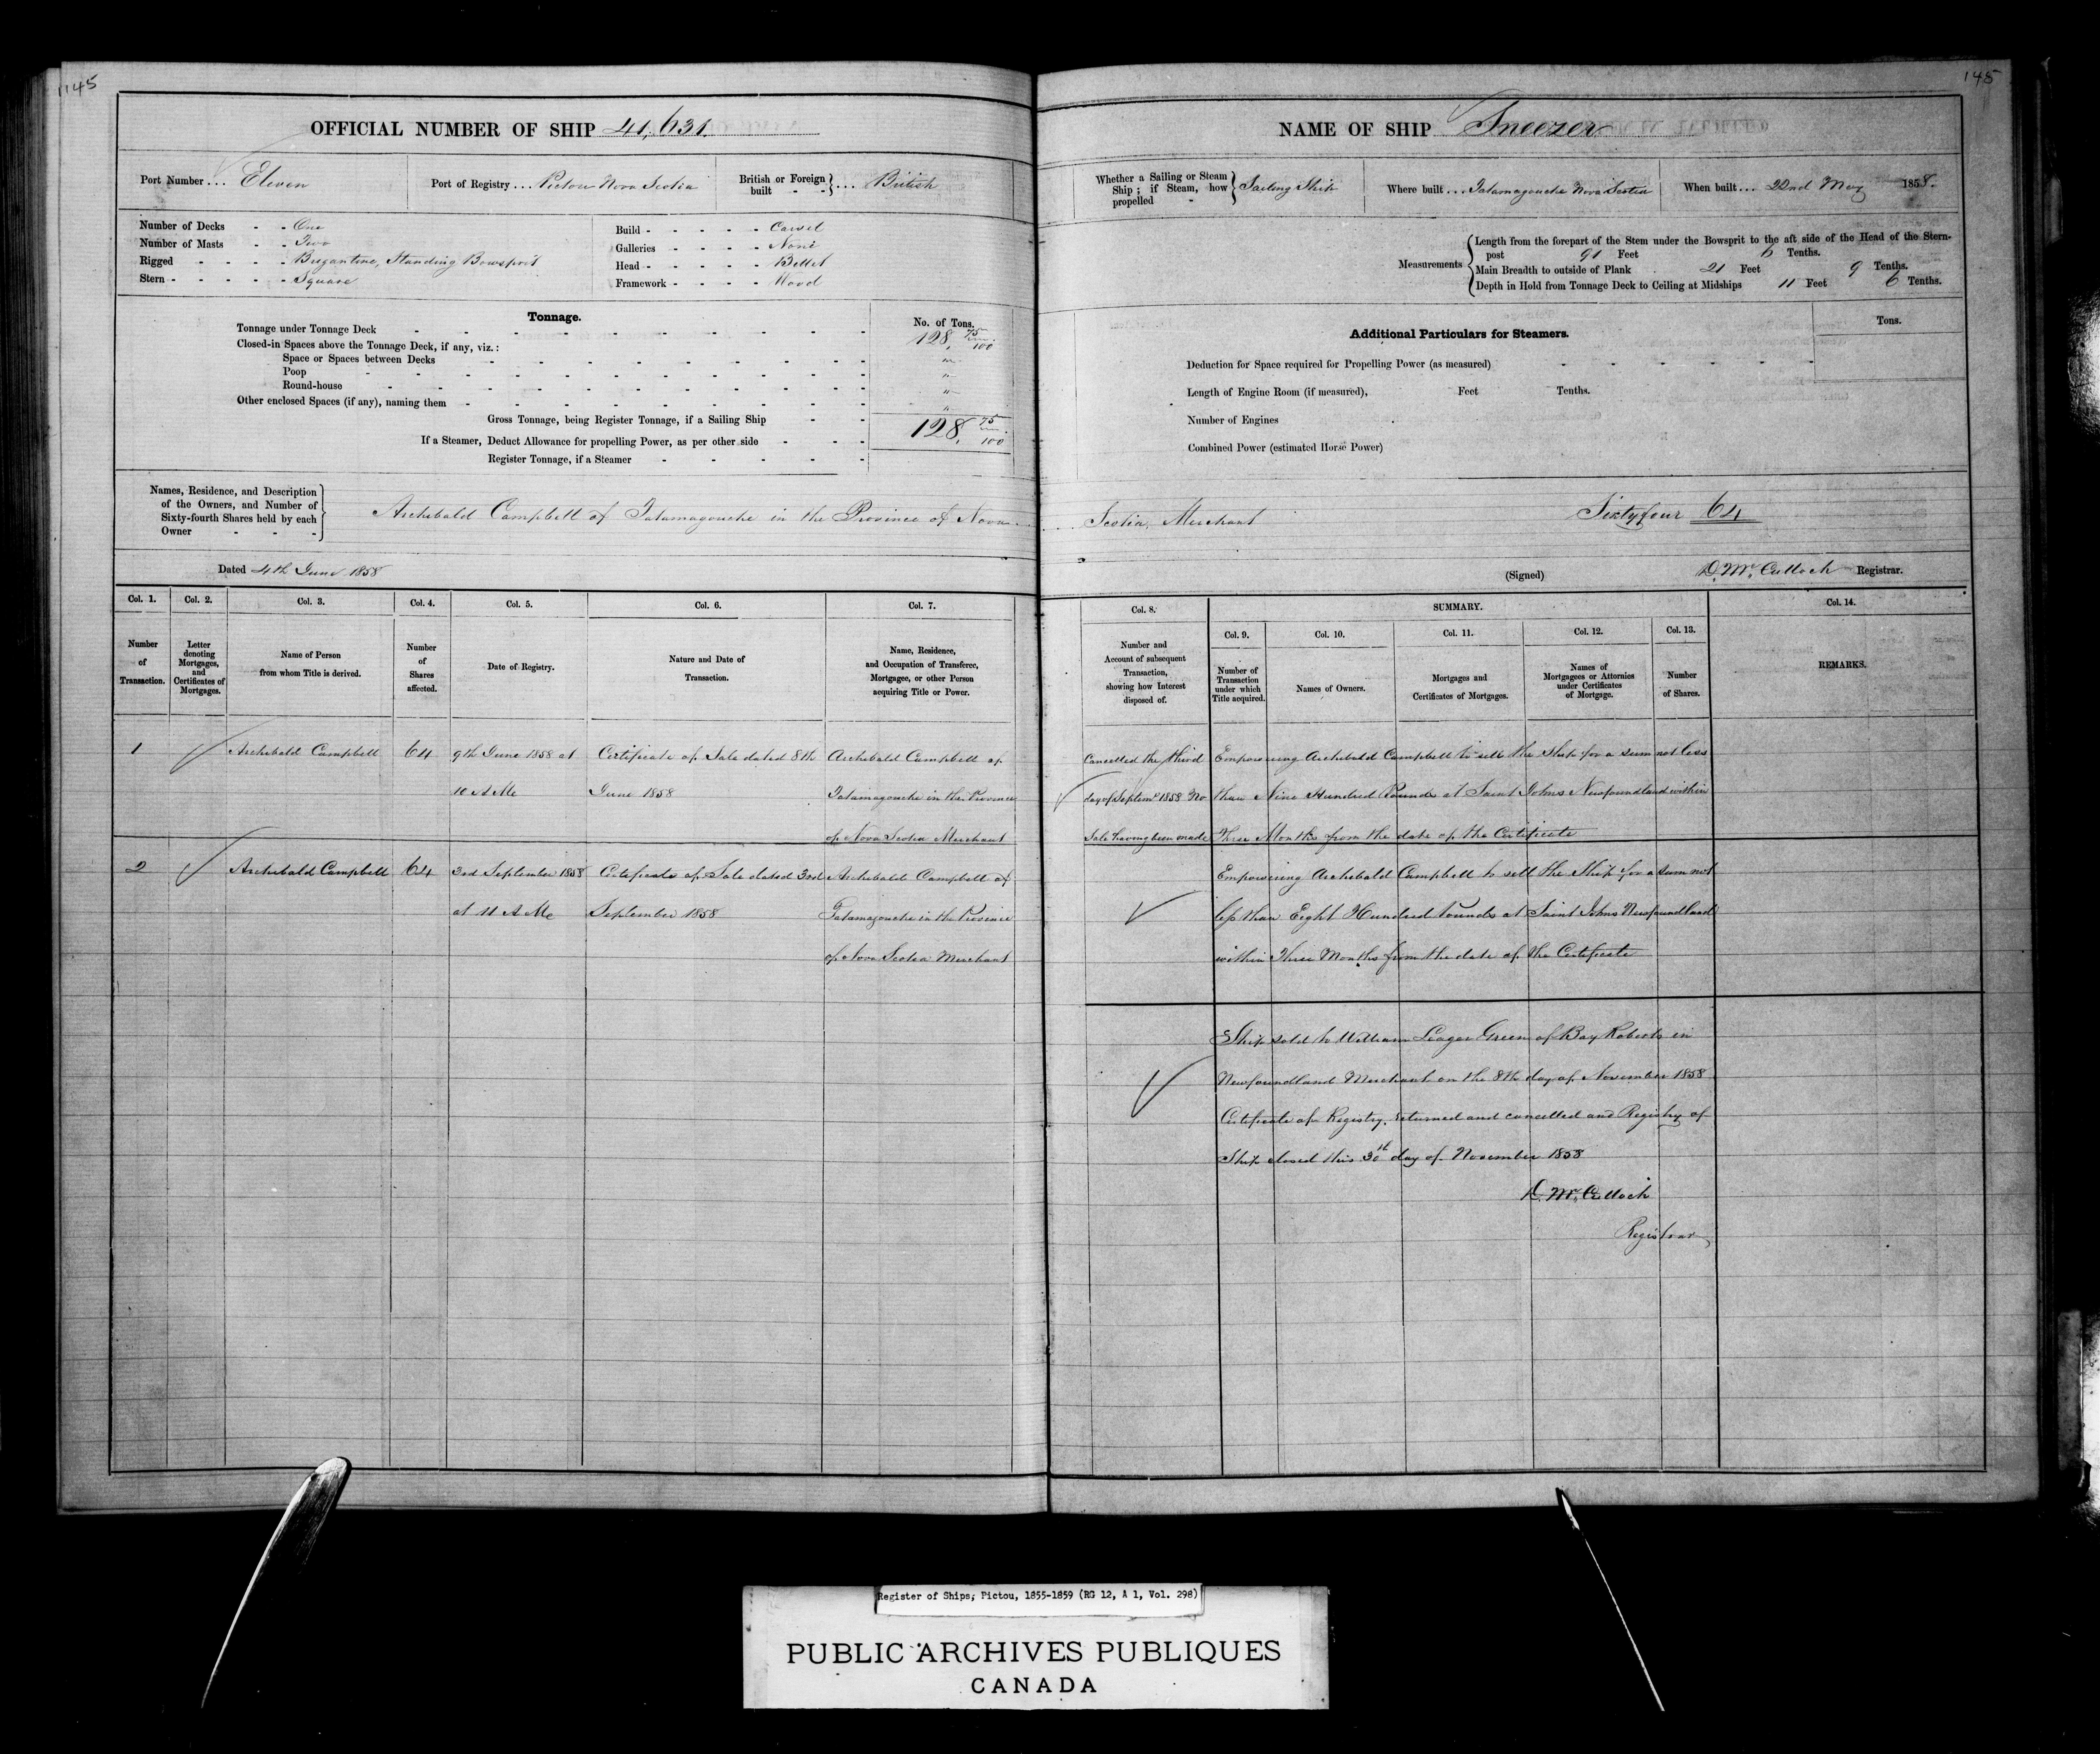 145
OFFICIAL NUMBER OF SHIP 41,631.
Port Number ... Eleven
Port of Registry ... Pictou Nova Scotia
British or Foreign built - - } ... British
Number of Decks - - One
Number of Masts - - Two
Rigged - - - - Brigantine, Standing Bowsprit
Stern - - - - - Square
Build - - - - - Carvel
Galleries - - - - None
Head - - - - - Billet
Framework - - - - Wood
Tonnage.
No. of Tons.
Tonnage under Tonnage Deck 128, 75/100
Closed-in Spaces above the Tonnage Deck, if any, viz.:
Space or Spaces between Decks "
Poop "
Round-house "
Other enclosed Spaces (if any), naming them "
Gross Tonnage, being Register Tonnage, if a Sailing Ship 128, 75/100
If a Steamer, Deduct Allowance for propelling Power, as per other side
Register Tonnage, if a Steamer
Names, Residence, and Description
of the Owners, and Number of
Sixty-fourth Shares held by each
Owner - - -
Archibald Campbell of Tatamagouche in the Province of Nova
Dated 4th June 1858
Col. 1. Col. 2. Col. 3. Col. 4. Col. 5. Col. 6. Col. 7.
Number of Transaction.
Letter denoting Mortgages, and Certificates of Mortgages.
Name of Person from whom Title is derived.
Number of Shares affected.
Date of Registry.
Nature and Date of Transaction.
Name, Residence, and Occupation of Transferee, Mortgagee, or other Person acquiring Title or Power.
1 Archibald Campbell 64 9th June 1858 at Certificate of Sale dated 8th Archibald Campbell of
10 A Me June 1858 Tatamagouche in the Province
of Nova Scotia Merchant
2 Archibald Campbell 64 3rd September 1858 Certificate of Sale dated 3rd Archibald Campbell of
at 11 A Me September 1858 Tatamagouche in the Province
of Nova Scotia Merchant
145
NAME OF SHIP Sneezer
Whether a Sailing or Steam Ship; if Steam, how propelled - } Sailing Ship
Where built ... Tatamagouche Nova Scotia
When built ... 22nd May 1858.
Measurements
Length from the forepart of the Stem under the Bowsprit to the aft side of the Head of the Stern-
post 91 Feet 6 Tenths.
Main Breadth to outside of Plank 21 Feet 9 Tenths.
Depth in Hold from Tonnage Deck to Ceiling at Midships 11 Feet 6 Tenths.
Additional Particulars for Steamers.
Tons.
Deduction for Space required for Propelling Power (as measured)
Length of Engine Room (if measured), Feet Tenths.
Number of Engines
Combined Power (estimated Horse Power)
Scotia, Merchant Sixty four 64
(Signed) D. McCulloch Registrar.
Col. 8. SUMMARY. Col. 14.
Col. 9. Col. 10. Col. 11. Col. 12. Col. 13.
Number and Account of subsequent Transaction, showing how Interest disposed of.
Number of Transaction under which Title acquired.
Names of Owners.
Mortgages and Certificates of Mortgages.
Names of Mortgagees or Attornies under Certificates of Mortgage.
Number of Shares.
REMARKS.
Cancelled the third Empowering Archibald Campbell to sell the Ship for a sum not less
day of Septemr 1858 No than Nine Hundred Pounds at Saint Johns Newfoundland within
Sale having been made Three Months from the date of the Certificate
Empowering Archibald Campbell to sell the Ship for a sum not
less than Eight Hundred Pounds at Saint Johns Newfoundland
within Three Months from the date of the Certificate
Ship sold to William Green of Bay Roberts in
Newfoundland Merchant on the 8th day of November 1858
Certificate of Registry returned and cancelled and Registry of
Ship closed this 30th day of November 1858
D. McCulloch
Registrar
Register of Ships; Pictou, 1855-1859 (RG 12, A 1, Vol. 298)
PUBLIC ARCHIVES PUBLIQUES
CANADA